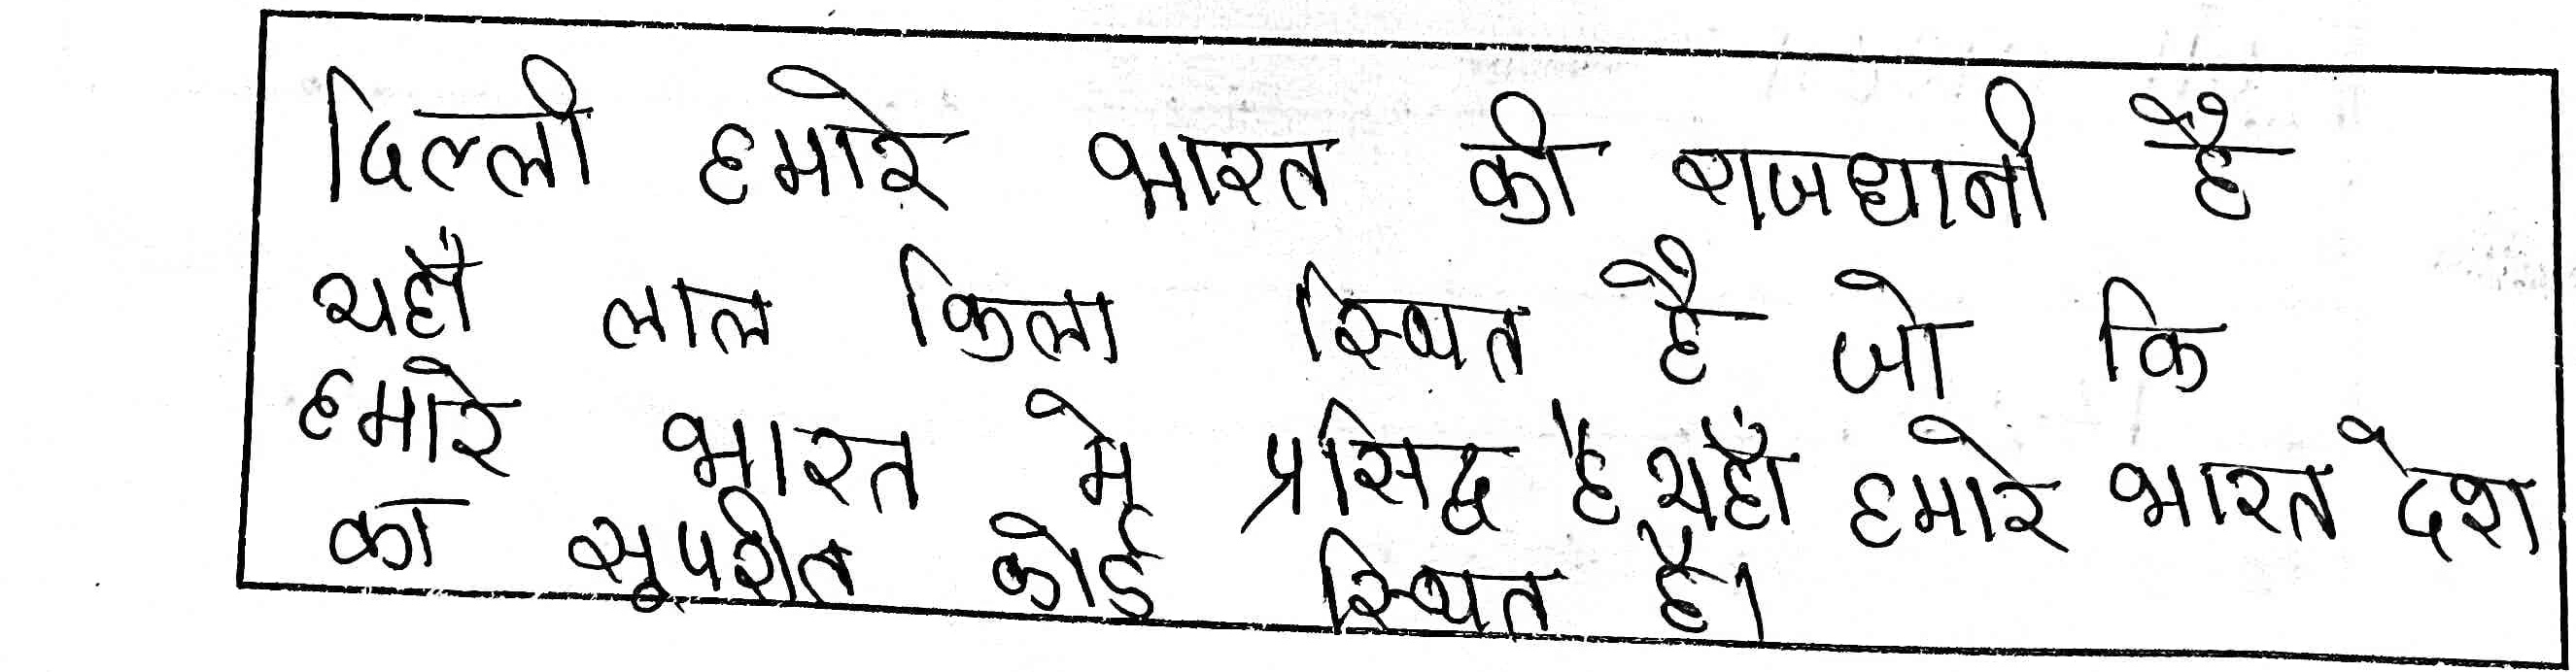 दिल्ली हमारे भारत की राजधानी है
यहाँ लाल किला स्थित है जो कि
हमारे भारत मे प्रसिद्ध है यहाँ हमारे भारत देश
का सूपरीत कोर्ड स्थित है।